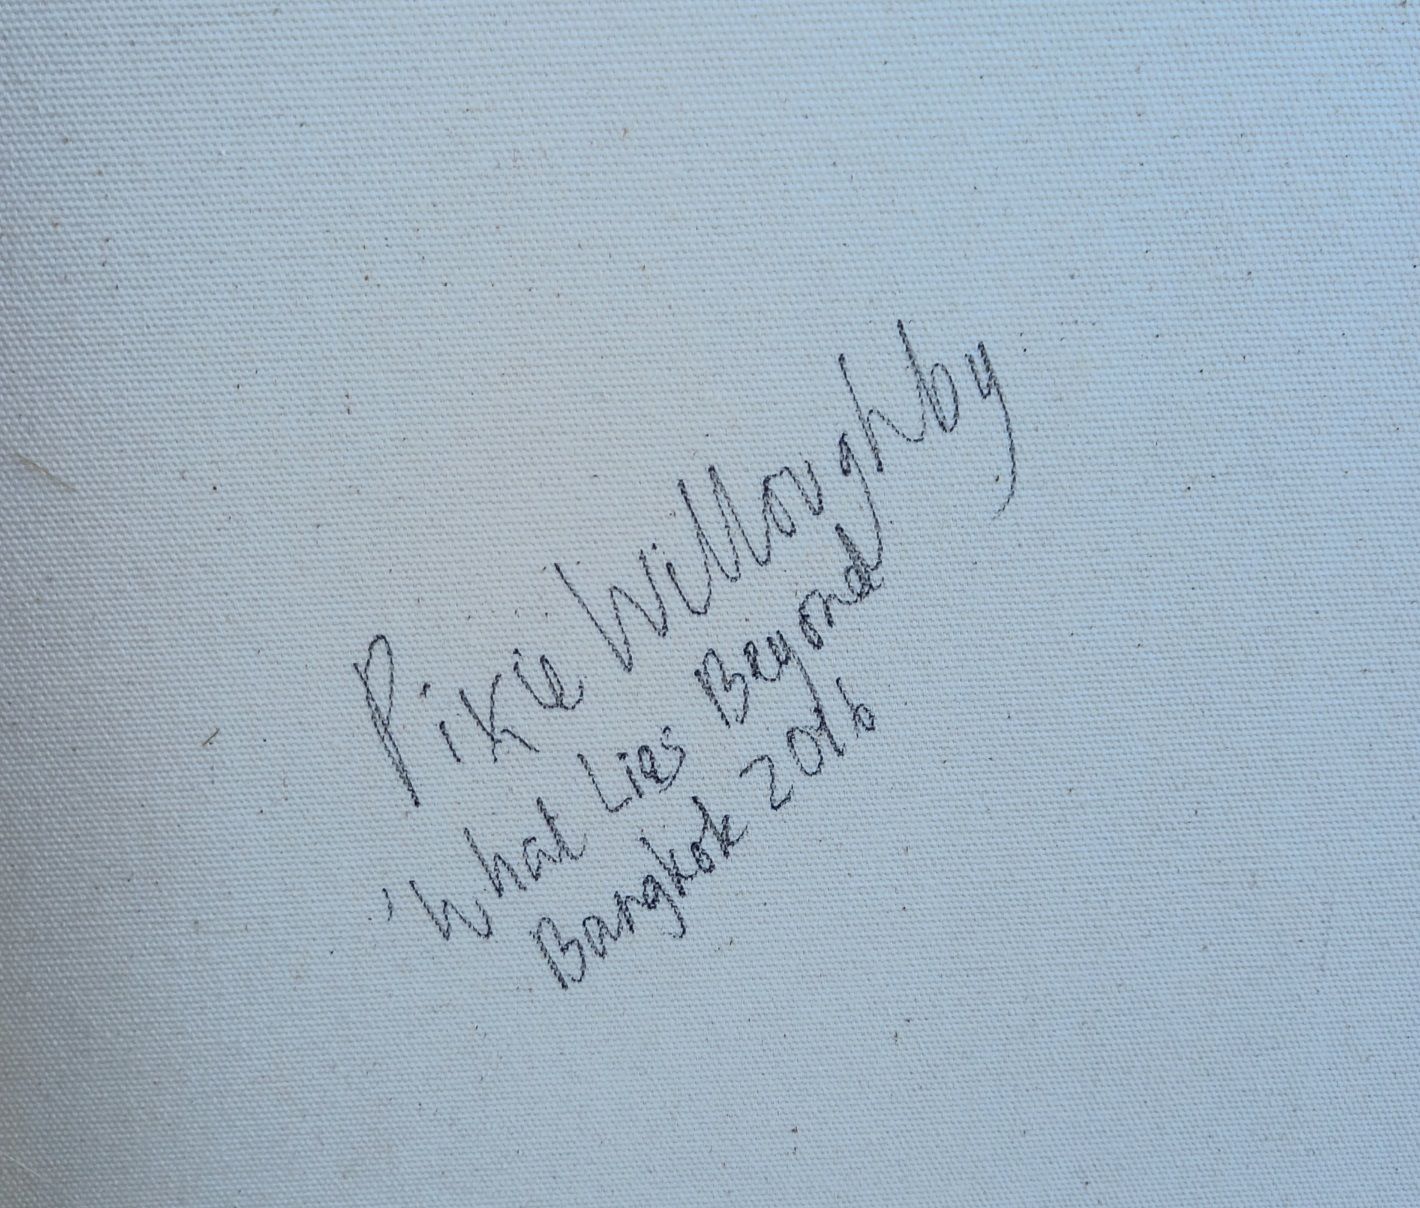 Pike Willoughby
'What Lies Beyond
Bangkok 2016